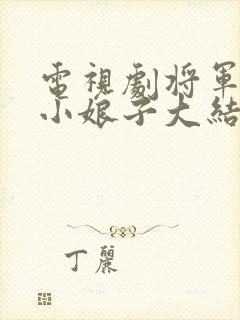 電視劇將軍
小娘子大結
丁麗